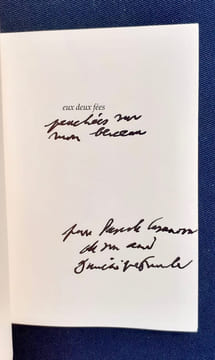 eux deux fées
penchées sur
mon berceau
pour Pascale Casanova
de son ami
Dominique Fourcade